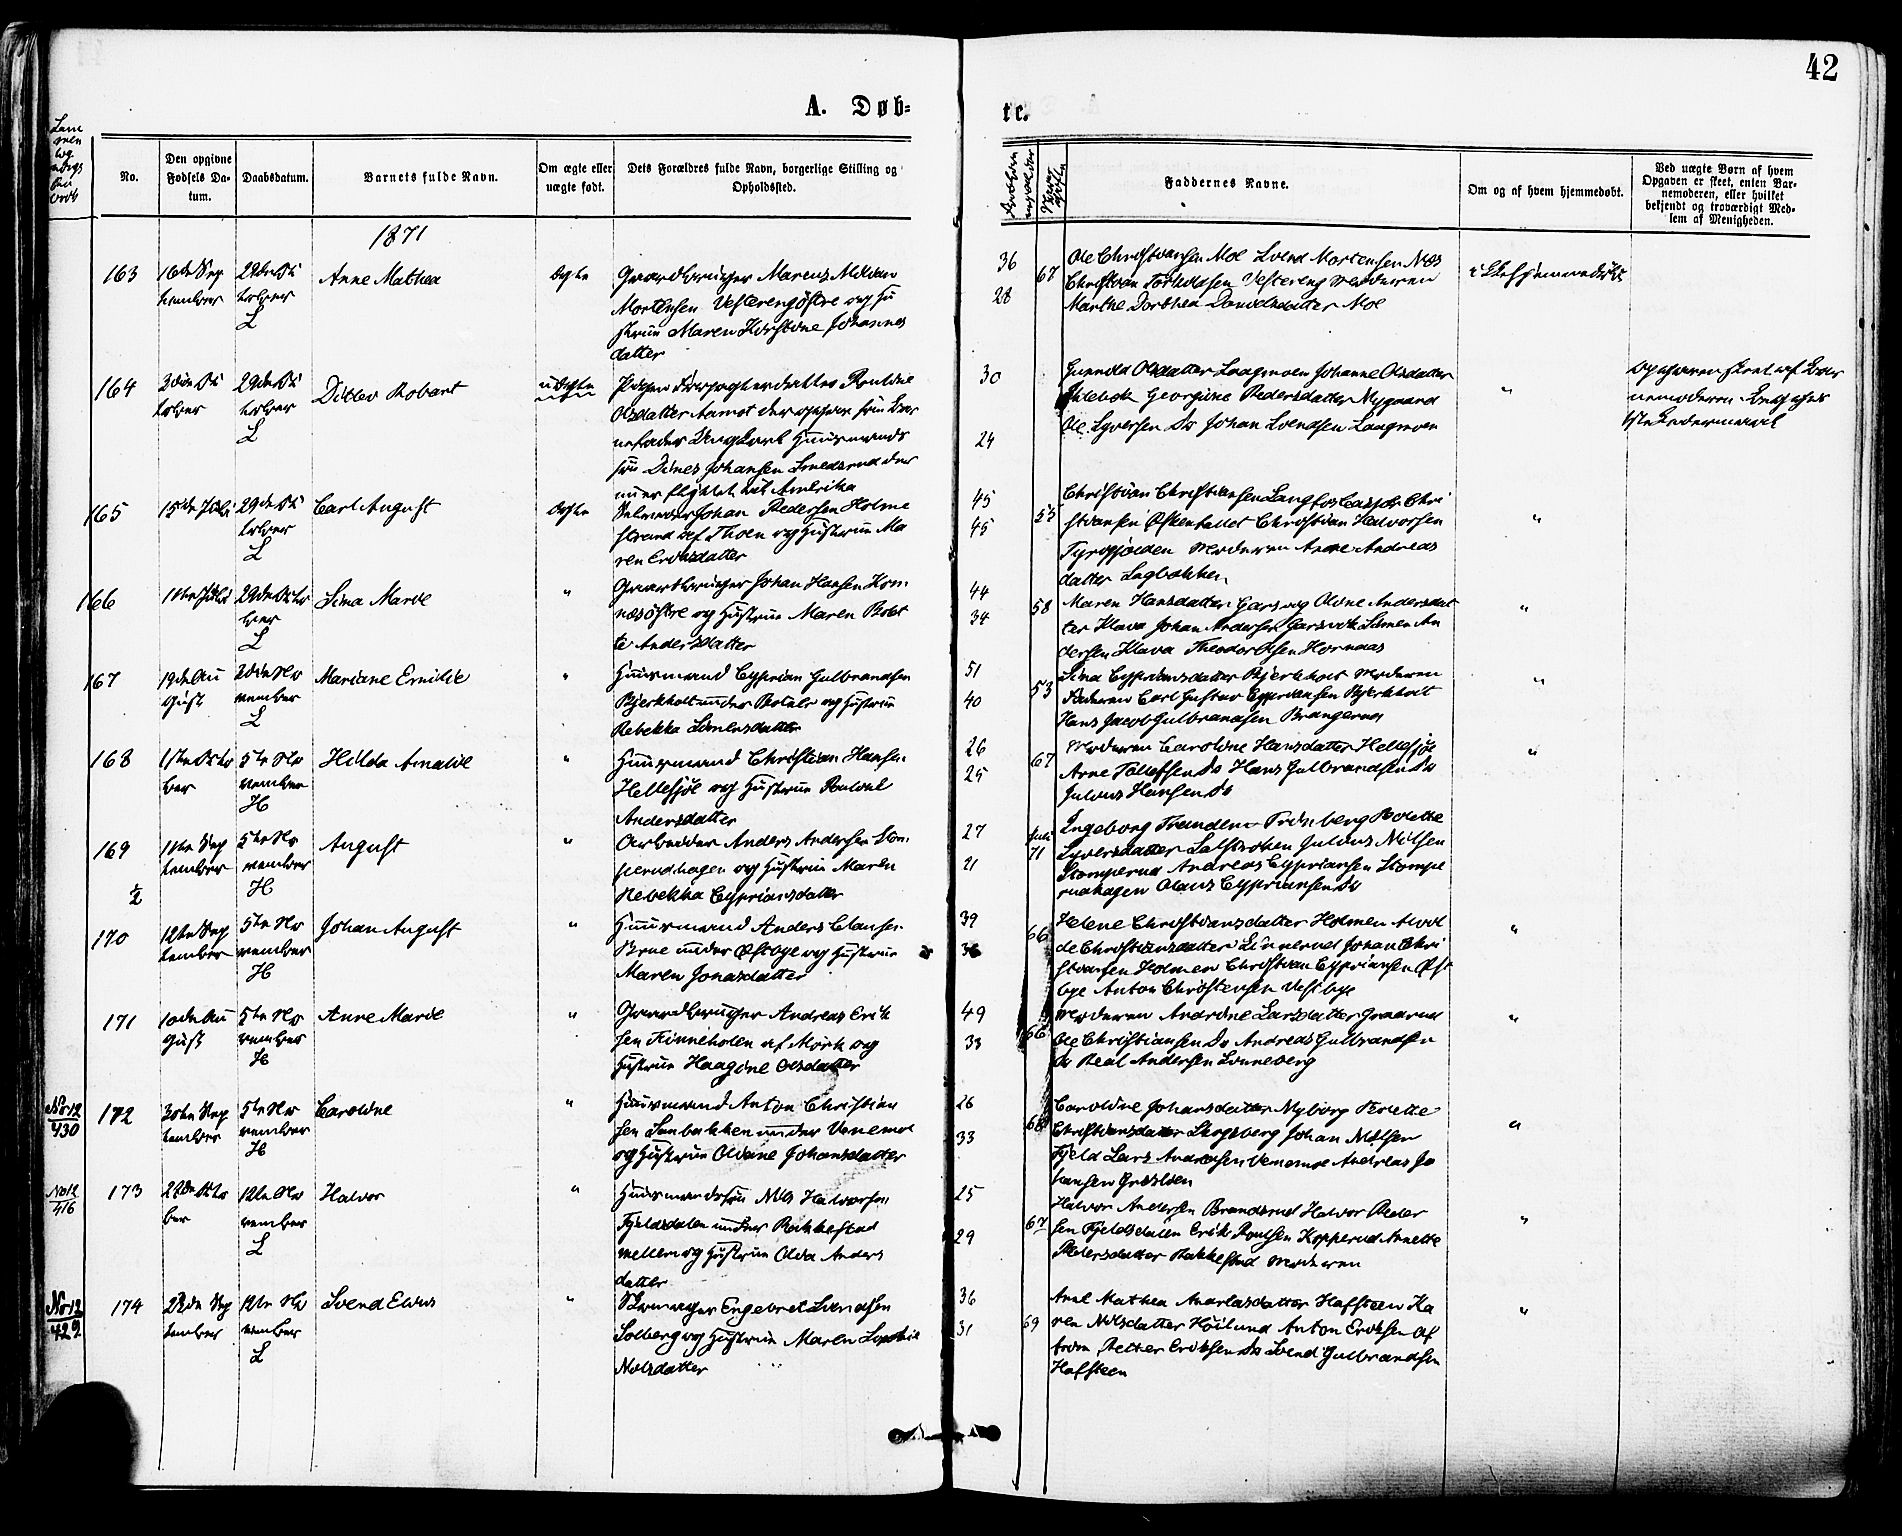 42
A. Døb-
te.
No.
Den opgivne
Fødsels Da-
tum.
Daabsdatum.
Barnets fulde Navn.
Om ægte eller
uægte født.
Dets Forældres fulde Navn, borgerlige Stilling og
Opholdssted.
Faddernes Navne.
Om og af hvem hjemmedøbt.
Ved uægte Børn af hvem
Opgaven er skeet, enten Bar-
nemoderen, eller hvilket
bekjendt og troværdigt Med-
lem af Menigheden.
1871
163
16de Sep
tember
29de Ok
tober
L
Anne Mathea
Ægte
Gaardbruger Marenus Milian
Mortensen Vesterengøstre og Hu
strue Maren Kirstine Johannes
datter
36
28
67
Ole Christiansen Moe Svend Mortensen Næs
Christian Torkildsen Vestereng Moderen
Marthe Dorthea Danielsdatter Moe
ikke hjemmedøbt
164
3die Ok
tober
29de Ok
tober
L
Ditlev Robart
uÆgte
Pigen
Olsdatter Aamot der opgiver som Bar
nefader Ungkarl Huusmands
søn Dines Johansen Smedsrud der
nu er flyttet til Amerika
30
24
Gunnild Olsdatter Laagmoen Johanne Olsdatter
Georgine Pedersdatter Nygaard
Ole Syversen Do Johan Svendsen Laagmoen
"
Opgaven skeet af Bar
nemoderen
165
15de Juli
29de Ok
tober
L
Carl August
Ægte
Johan Pedersen Holme
strand af Thoen og Hustrue Ma
ren Eriksdatter
45
45
57
Christian Christiansen Langfos Casper Chri
stiansen Christian Halvorsen
Tyrigjolden Moderen Anne Andreas
datter Lagbakken
"
166
11te Juli
29de Okto
ber
L
Sina Marie
"
Gaardbruger Johan Hansen Hor
næsøstre og Hustrue Maren Bolet
te Andersdatter
44
34
58
Maren Hansdatter Garsvig Oline Andersdat
ter Klava Johan Andersen Garsvik Simen An
dersen Klava Theodor Olsen Hornæs
"
167
19de Au
gust
30de No
vember
L
Mariane Emilie
"
Huusmand Cyprian Gulbrandsen
Bjerkholt under Botner og Hustrue
Rebekka Simensdatter
51
40
53
Sina Cypriansdatter Bjerkholt Moderen
Faderen Carl Gustav Cypriansen Bjerkholt
Hans Jacob Gulbrandsen Brangerud
"
168
1ste Okto
ber
5te No
vember
H
Hilda Amalie
"
Huusmand Christian Hansen
Hellesjøe og Hustrue
Andersdatter
26
25
67
Moderen Caroline Hansdatter Hellesjøe
Arne Tollefsen Do Hans Gulbrandsen Do
Julius Hansen Do
"
169
11te Sep
tember
5te No
vember
H
August
"
Arbeider Anders Andersen Stom
perudhagen og Hustrue Maren
Rebekka Cypriansdatter
27
21
Juli
71
Ingeborg Bolette
Syversdatter Julius Nilsen
Stomperud Andreas Cypriansen Stompe
rudhagen Olaus Cypriansen Do
170
12te Sep
tember
5te No
vember
H
Johan August
"
Huusmand Anders Clausen
Brue under Østbye og Hustrue
Maren Jonasdatter
39
36
66
Helene Christiansdatter Holmen
de Christiansdatter Linnerud Johan Chri
stiansen Holmen Christian Cypriansen Øst
bye Anton Christensen Vestbye
"
171
10de Au
gust
5te No
vember
H
Anne Marie
"
Gaardbruger Andreas Erik
sen Finneholen af Mørk og
Hustrue Haagine Olsdatter
49
38
66
Moderen Andrine Larsdatter Graarud
Ole Christiansen Do Andreas Gulbrandsen
Do Beal Andersen Linneberg
"
No 12
430
172
30te Sep
tember
5te No
vember
H
Caroline
"
Huusmand Anton Christian
sen Sanbakken under Venemoe
og Hustrue Olvine Johansdatter
26
33
68
Caroline Johansdatter Nyborg Bolette
Christiansdatter Skogsberg Johan Nilsen
Fjeld Lars Andreasen Venemoe Andreas Jo
hansen
"
No 12
416
173
22de Okto
ber
12te No
vember
L
Halvor
"
Huusmandssøn Nils Halvorsen
Fjeldsdalen under Rakkestad
mellem og Hustrue Olea Anders
datter
25
29
67
Halvor Andersen Brandsrud Halvor Peder
sen Fjeldsdalen Erik Poulsen Kopperud Annette
Pedersdatter Rakkestad Moderen
"
No 12
429
174
22de Sep
tember
12te No
vember
L
Svend Elvius
"
Engebret Svendsen
Solberg og Hustrue Maren Sophie
Nilsdatter
36
31
69
Anne Mathea Andreasdatter Hafsteen Ka
ren Nilsdatter Høilund Anton Eriksen af
Petter Eriksen Do Svend Gulbrandsen
Hafsteen
"